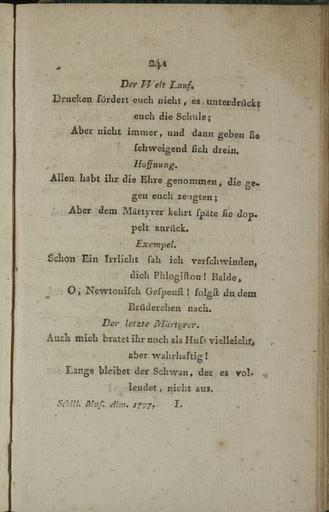 241
Der Welt Lauf.
Drucken fördert euch nicht, es unterdrückt
euch die Schule;
Aber nicht immer, und dann geben sie
schweigend sich drein.
Hoffnung.
Allen habt ihr die Ehre genommen, die ge-
gen euch zeugten;
Aber dem Märtyrer kehrt späte sie dop-
pelt zurück.
Exempel.
Schon Ein Irrlicht sah ich verschwinden,
dich Phlogiston! Balde,
O, Newtonisch Gespenst! folgst du dem
Brüderchen nach.
Der letzte Märtyrer.
Auch mich bratet ihr noch als Huss vielleicht,
aber wahrhaftig!
Lange bleibet der Schwan, der es vol-
lendet, nicht aus.
Schill. Mus. Alm. 1797. L